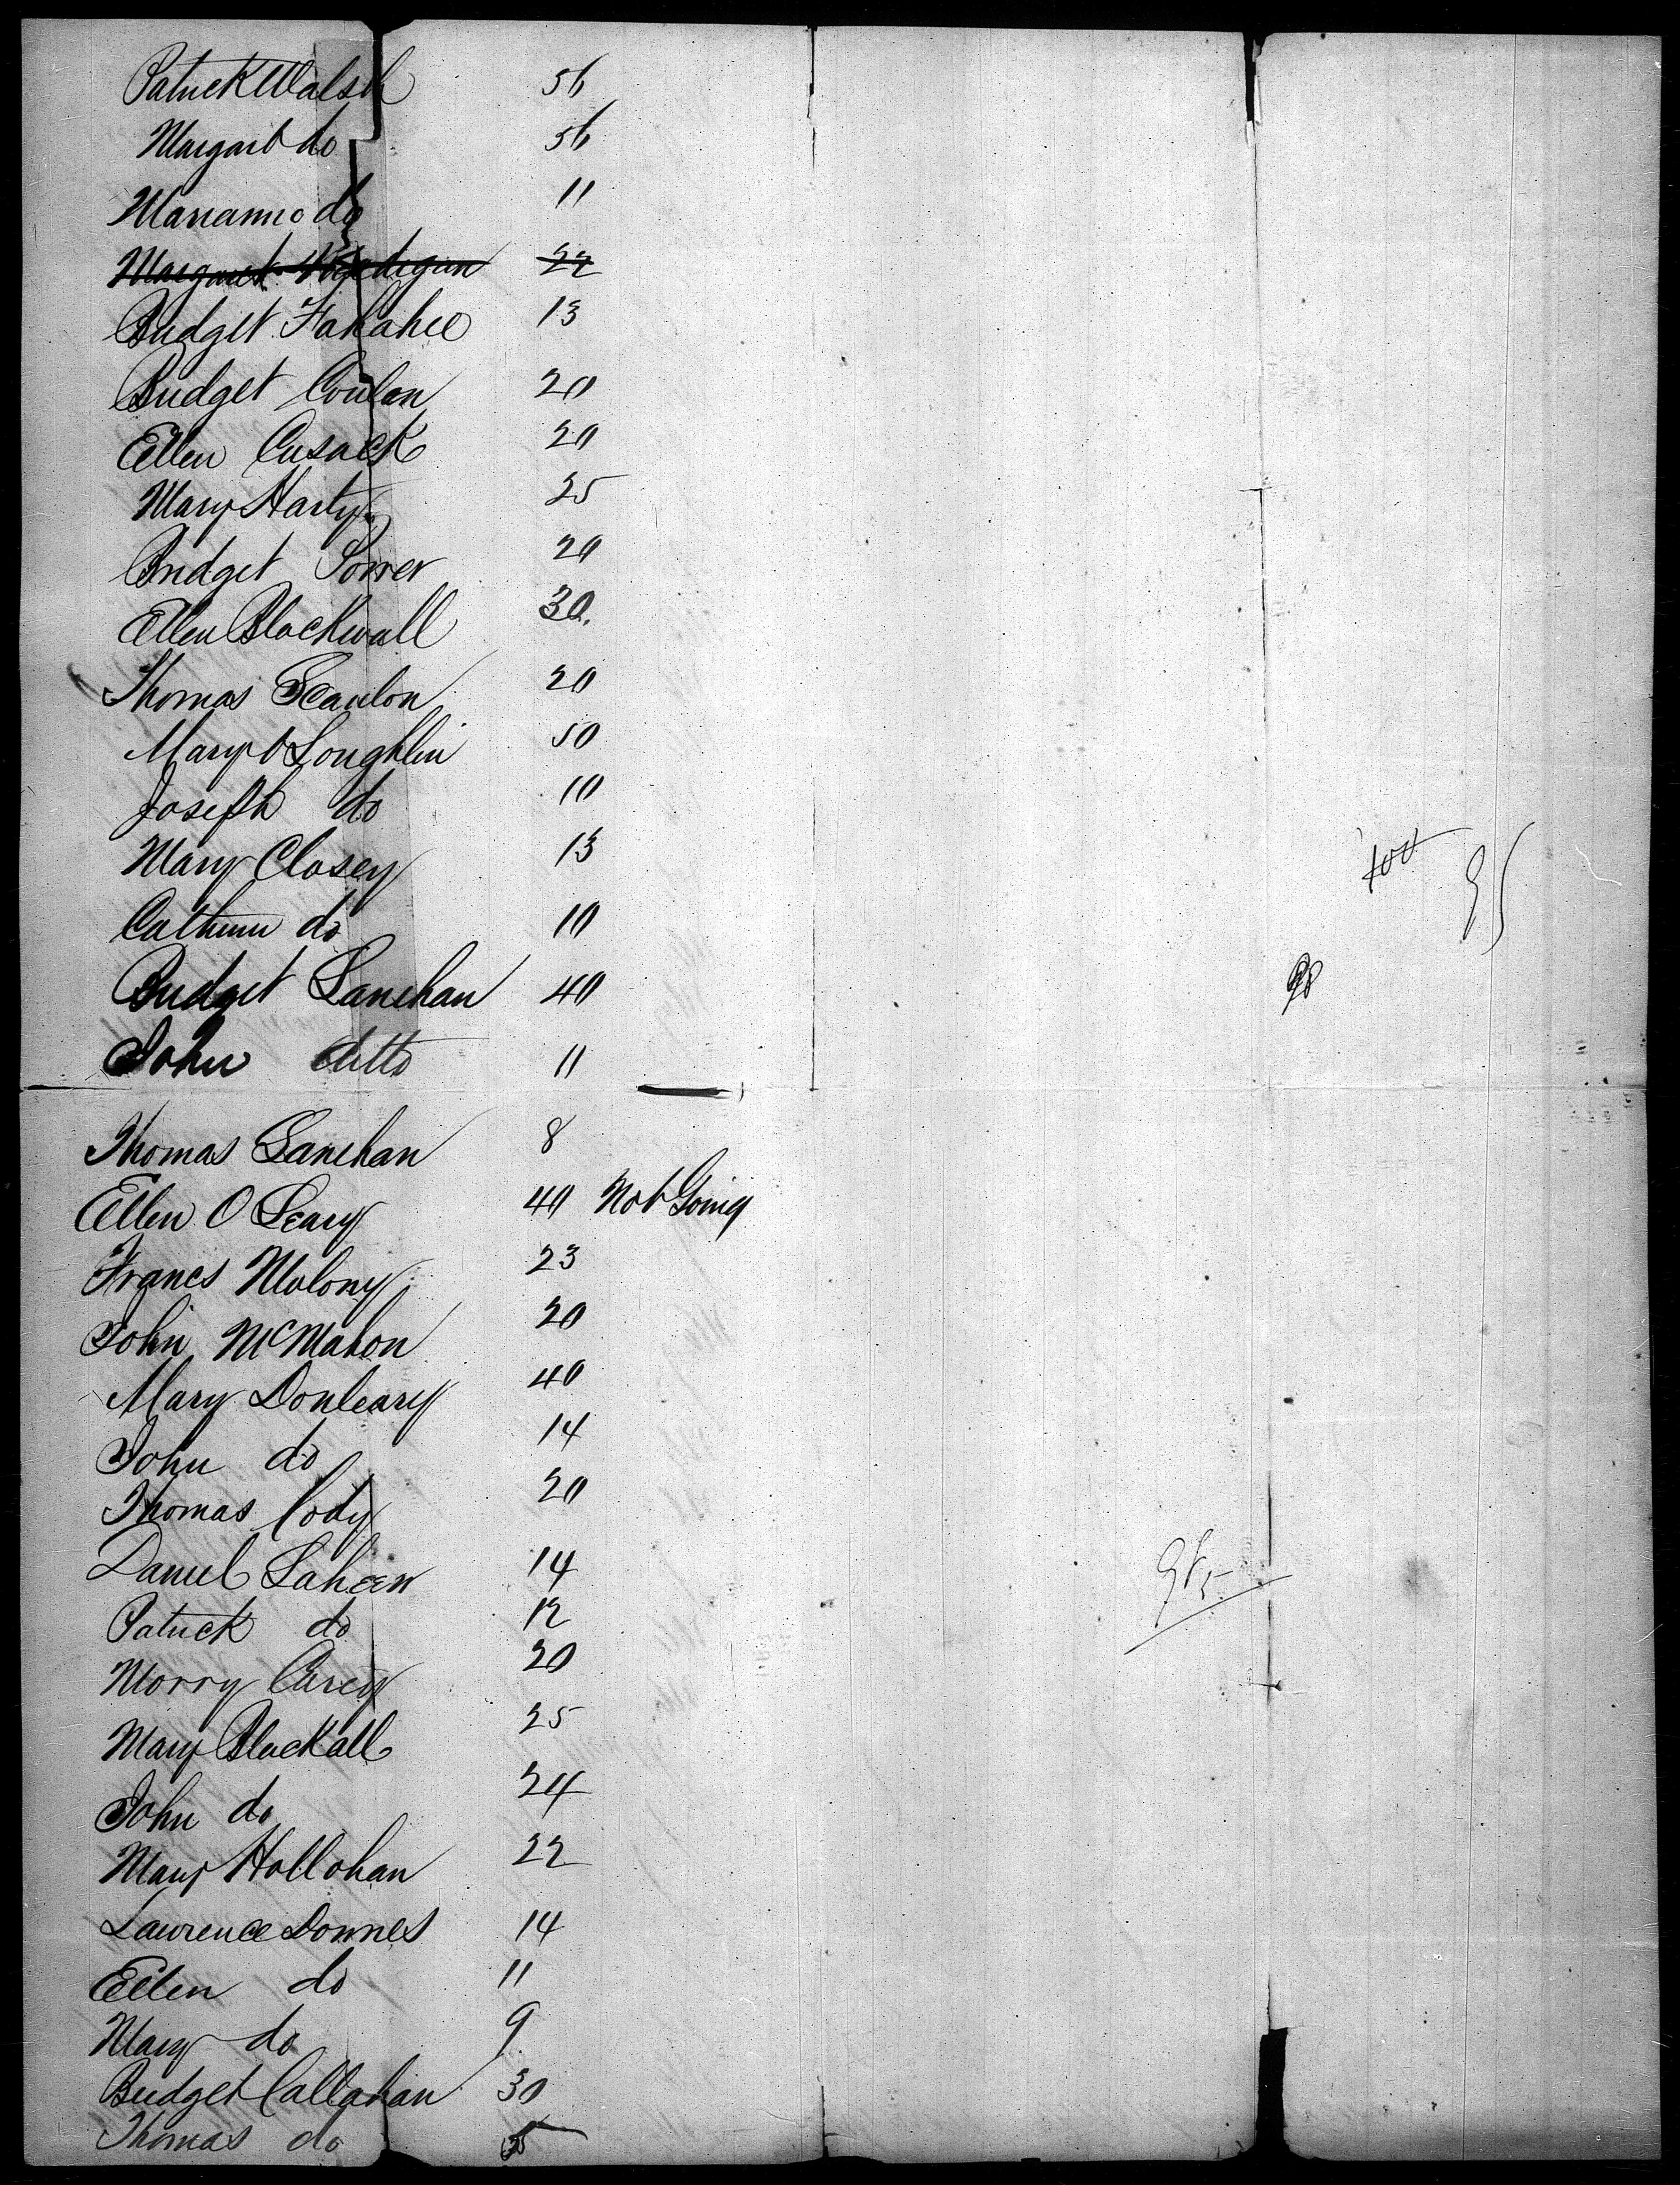 Patrick Walsh 56
Margart do 56
Marianne do 11
Margaret 22
Bridget Fahahee 13
Bridget Conlan 20
Ellen Cusack 20
Mary Harty 25
Bridget Power 20
Ellen Blackwall 30
Thomas Scanlon 20
Mary O Loughlin 50
Joseph do 10
Mary Closey 13
100
95
Cathrine do 10
Bridget Lanehan 40
98
John ditto 11
Thomas Lanehan 8
Ellen O Leary 40 Not Going
Francs Molony 23
John McMahon 20
Mary Donleavy 40
John do 14
Thomas Cody 20
Daniel Laheen 14
Patrick do 12
Morry Carey 20
Mary Blackall 25
John do 24
Mary Hollohan 22
Lawrence Downes 14
Ellen do 11
Mary do 9
Bridget Callahan 30
Thomas do